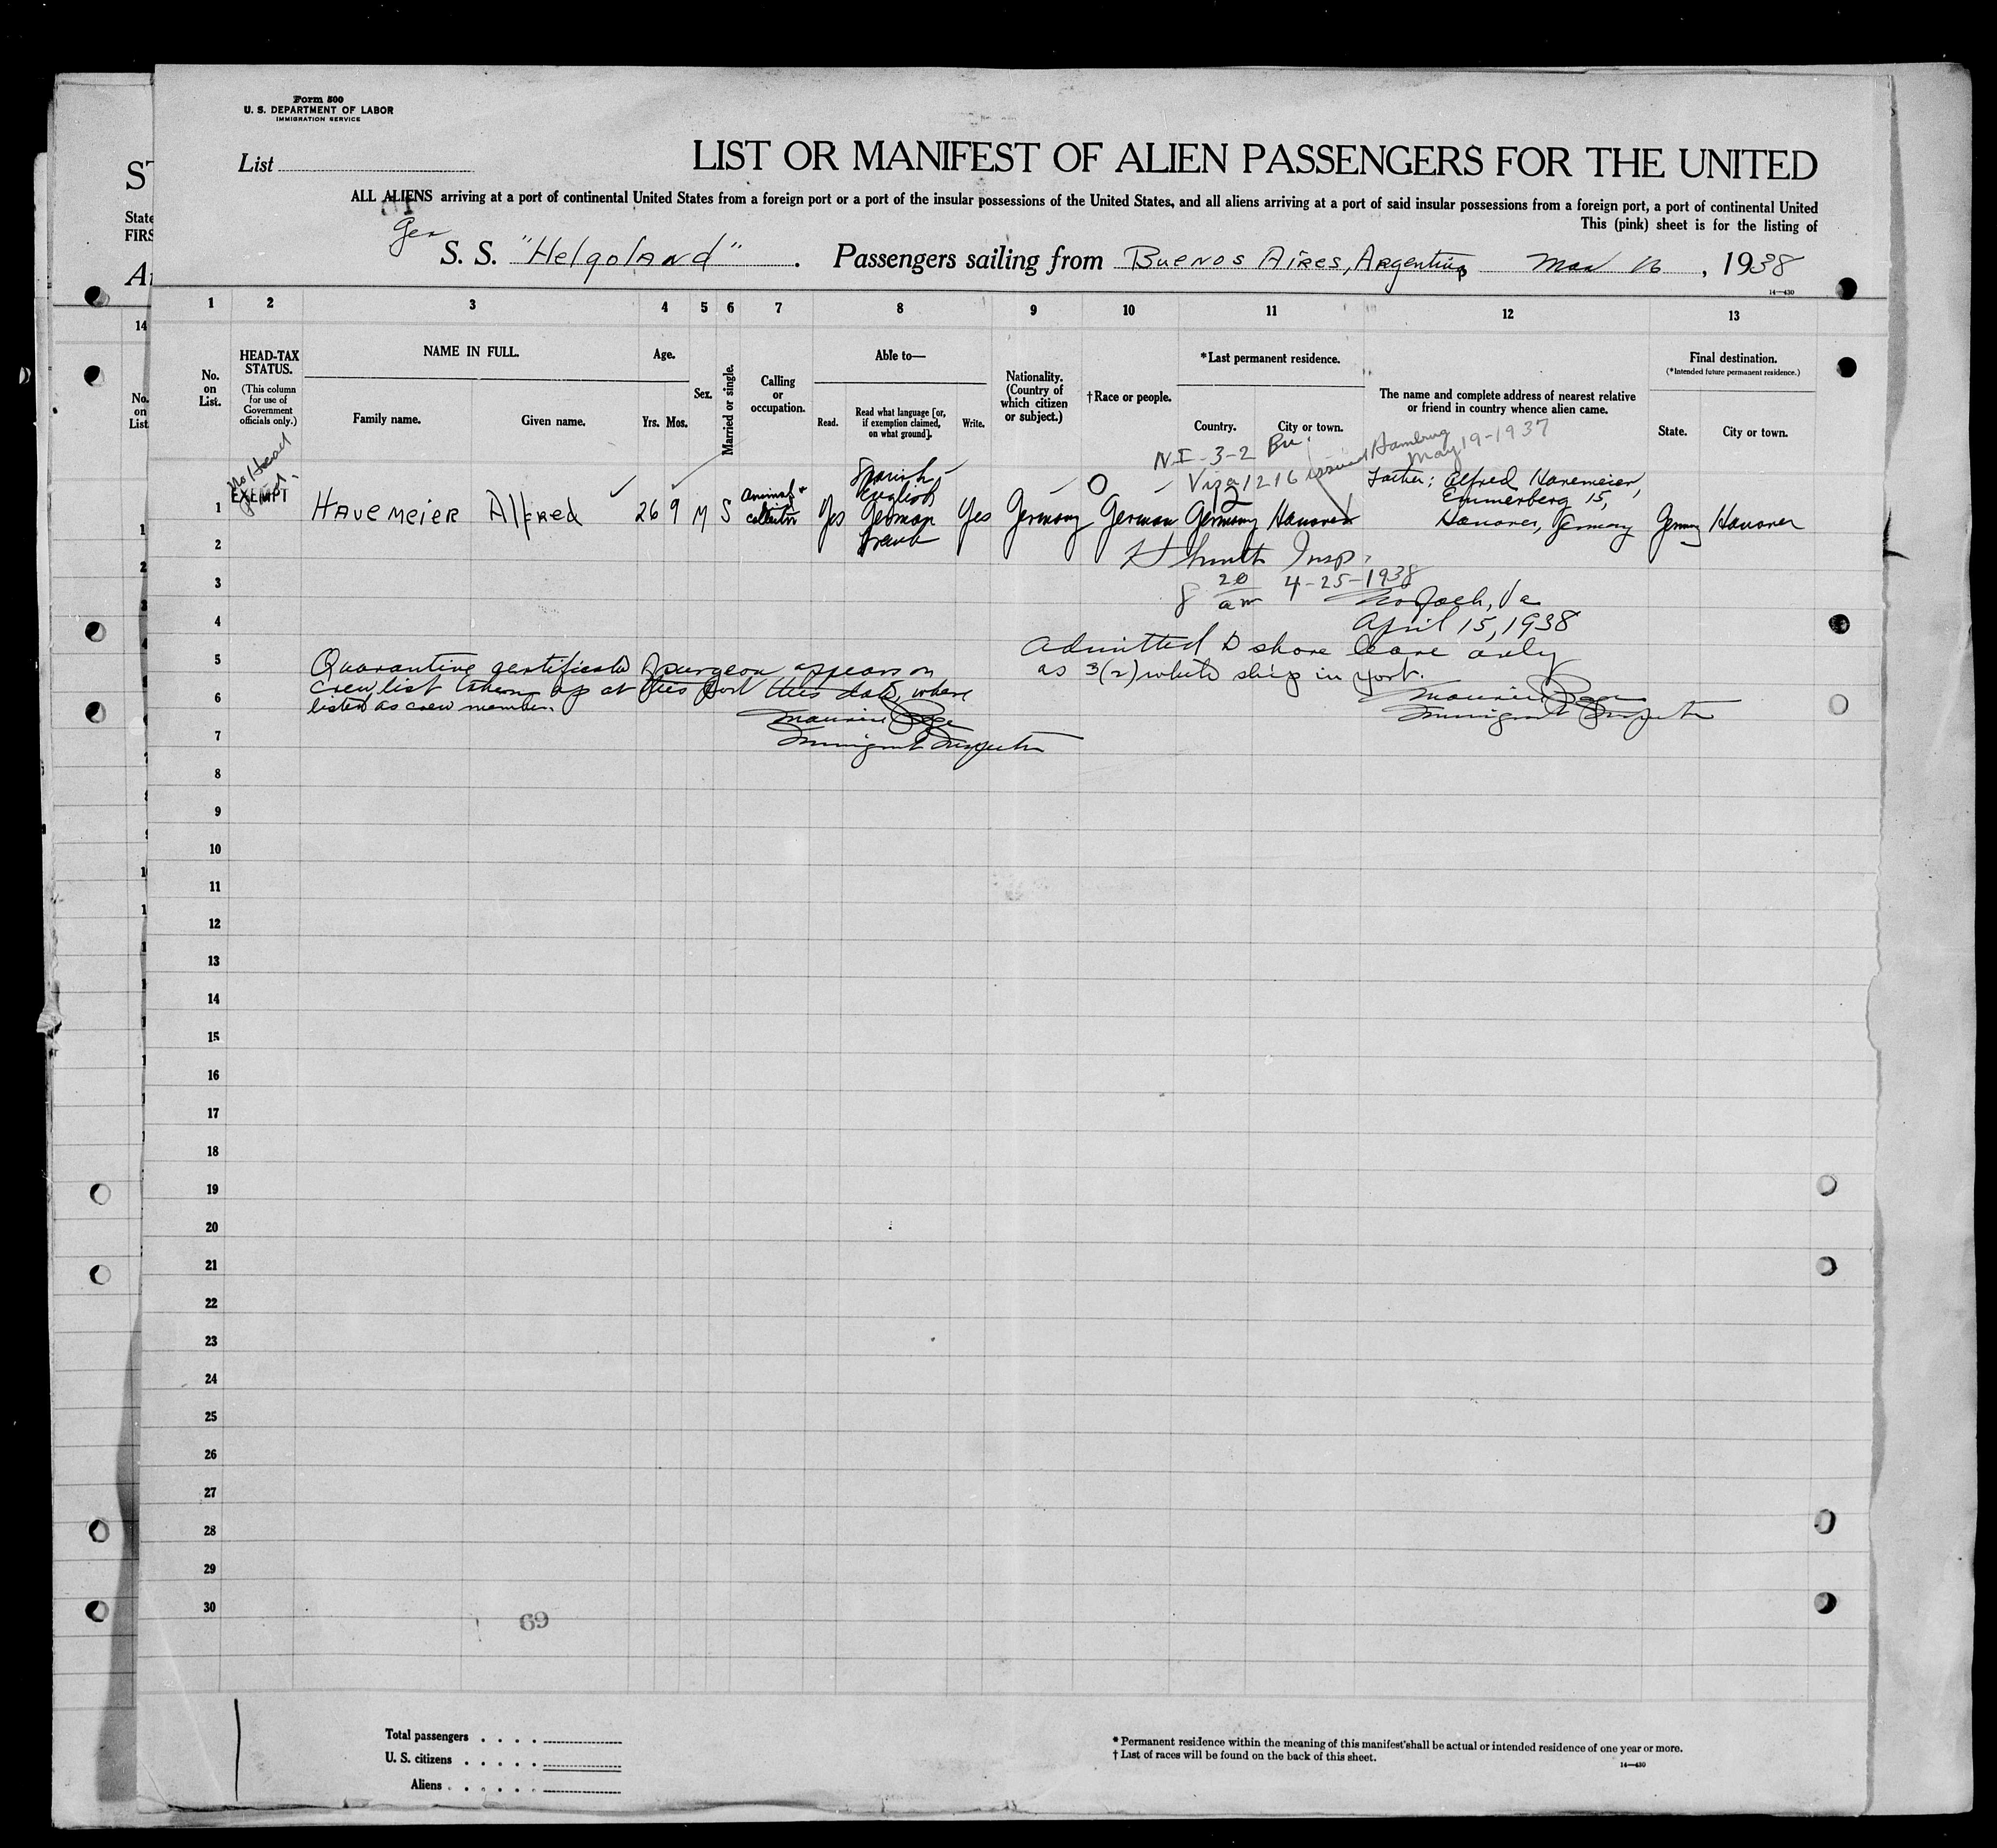 Form 500
U. S. DEPARTMENT OF LABOR
IMMIGRATION SERVICE
ST
List
LIST OR MANIFEST OF ALIEN PASSENGERS FOR THE UNITED
State
FIRS
ALL ALIENS arriving at a port of continental United States from a foreign port or a port of the insular possessions of the United States, and all aliens arriving at a port of said insular possessions from a foreign port, a port of continental United
This (pink) sheet is for the listing of
Ger
S. S. "Helgoland". Passengers sailing from Buenos Aires, Argentina Mar 16, 1938
14—430
1 2 3 4 5 6 7 8 9 10 11 12 13
14
No. on List.
HEAD-TAX STATUS.
(This column for use of Government officials only.)
NAME IN FULL.
Family name. Given name.
Age.
Yrs. Mos.
Sex.
Married or single.
Calling or occupation.
Able to—
Read. Read what language [or, if exemption claimed, on what ground]. Write.
Nationality. (Country of which citizen or subject.)
†Race or people.
*Last permanent residence.
Country. City or town.
The name and complete address of nearest relative or friend in country whence alien came.
Final destination.
(*Intended future permanent residence.)
State. City or town.
No. on List
NI-3-2 Bu.
Visa 1216 issued Hamburg
May 19-1937
No Head
EXEMPT
1 Havemeier Alfred 26 9 M S Animal collector Yes Spanish English German French Yes Germany German Germany Hanover Father: Alfred Havemeier, Emmerberg 15, Hanover, Germany Germany Hanover
2
H Smith Insp.
3
8 20 am 4-25-1938
Norfolk, Va
4
April 15, 1938
5
Admitted D shore leave only
as 3(2) while ship in port.
Maurice
Immigrant Inspector
Quarantine certificate surgeon appears on
6
crew list taken up at this port this date, where
listed as crew member.
Maurice
7
Immigrant Inspector
8
9
10
11
12
13
14
15
16
17
18
19
20
21
22
23
24
25
26
27
28
29
30
69
Total passengers
U. S. citizens
Aliens
* Permanent residence within the meaning of this manifest shall be actual or intended residence of one year or more.
† List of races will be found on the back of this sheet.
14—430